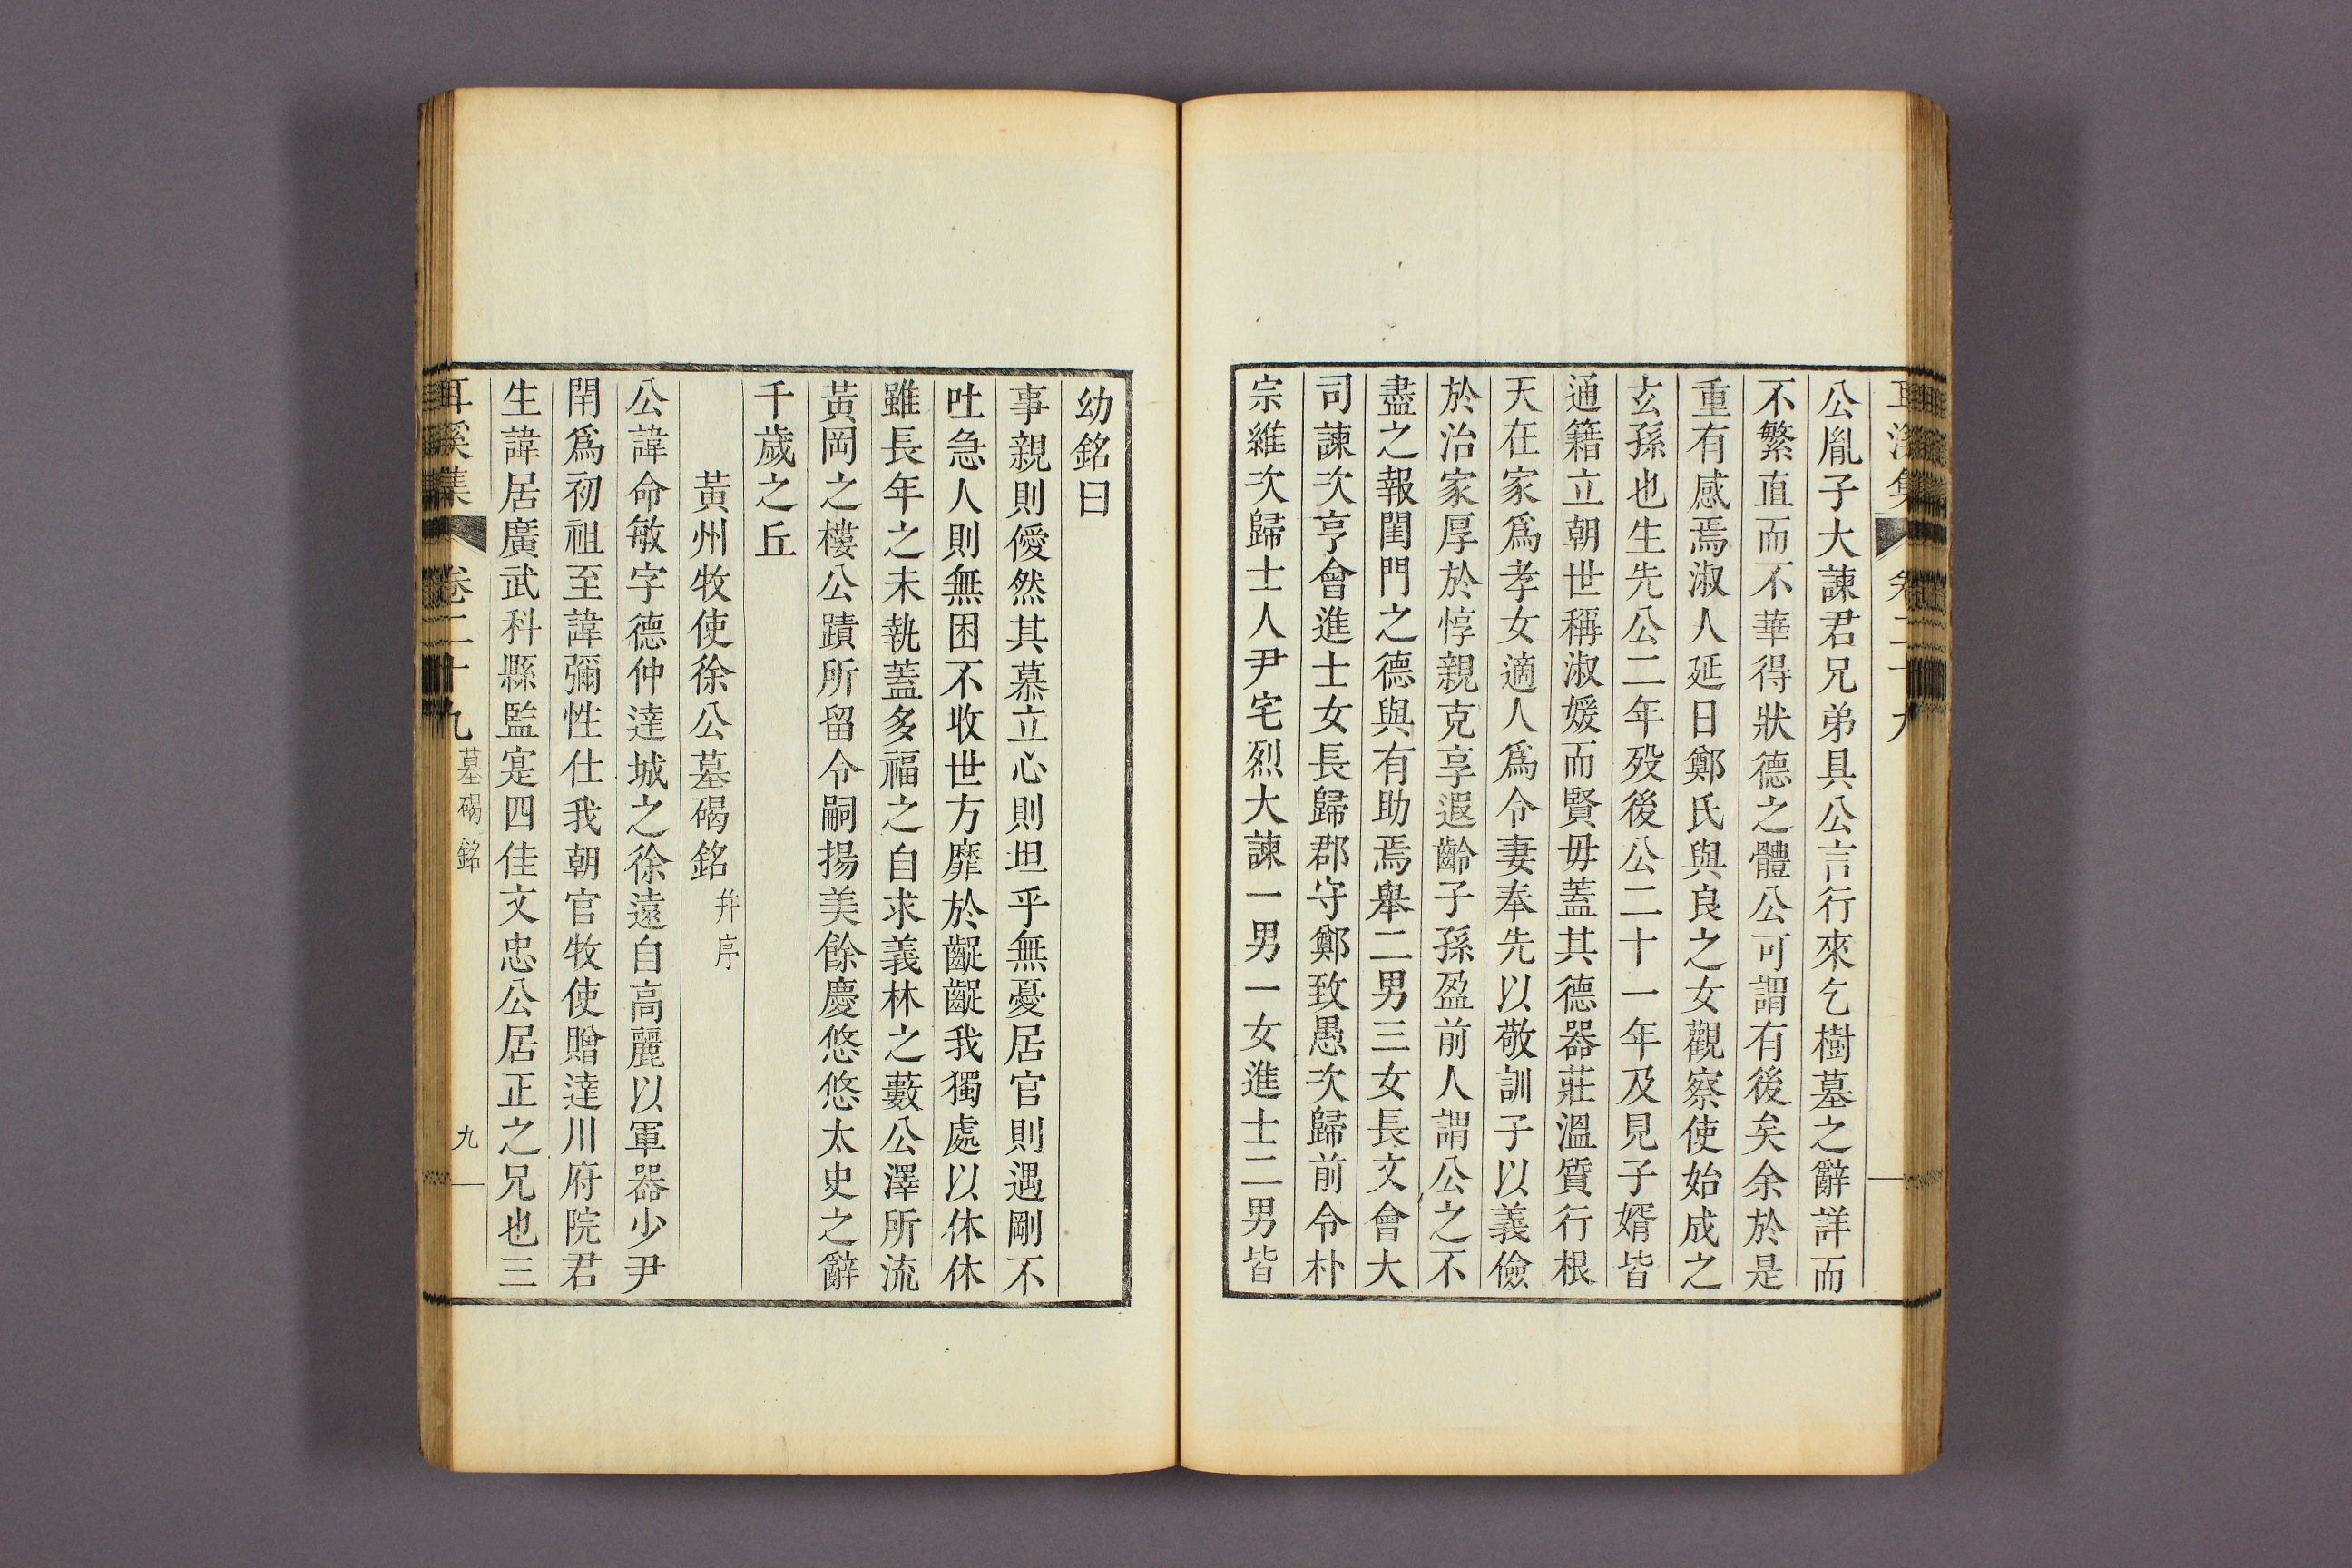 公胤子大諫君兄弟具公言行來乞樹墓之辭詳而
不繁直而不華得狀德之體公可謂有後矣余於是
重有感焉淑人延日鄭氏與良之女觀察使始成之
玄孫也生先公二年歿後公二十一年及見子婿皆
通籍立朝世稱淑媛而賢毋蓋其德器莊溫質行根
天在家爲孝女適人爲令妻奉先以敬訓子以義儉
於治家厚於惇親克享遐齡子孫盈前人謂公之不
盡之報閨門之德與有助焉舉二男三女長文會大
司諫次亨會進士女長歸郡守鄭致愚次歸前令朴
宗維次歸士人尹宅烈大諫一男一女進士二男皆
幼銘曰
事親則僾然其慕立心則坦乎無憂居官則遇剛不
吐急人則無困不收世方靡於齪齪我獨處以休休
雖長年之未執蓋多福之自求義林之藪公澤所流
黃岡之樓公蹟所留令嗣揚美餘慶悠悠太史之辭
千歲之丘
黃州牧使徐公墓碣銘 幷序
公諱命敏字德仲達城之徐遠自高麗以軍器少尹
閈爲初祖至諱彌性仕我朝官牧使贈達川府院君
生諱居廣武科縣監寔四佳文忠公居正之兄也三
耳溪集 卷二十九 墓碣銘 九